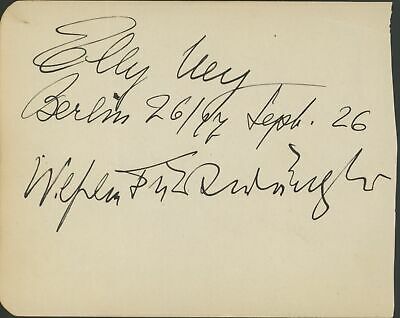 Elly Ney
Berlin 26/27 Sept. 26
Wilhelm Furtwängler